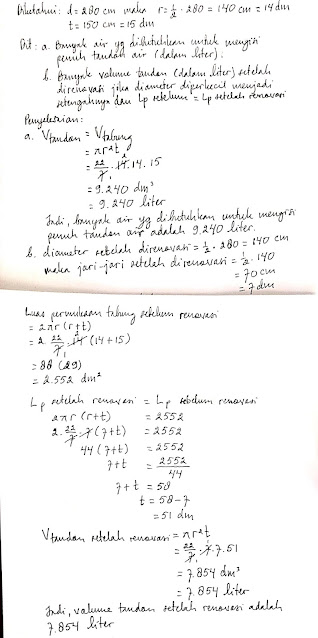 Diketahui: d = 280 cm maka r = 1/2 · 280 = 140 cm = 14 dm
t = 150 cm = 15 dm
Dit: a. Banyak air yg dibutuhkan untuk mengisi
penuh tandon air (dalam liter);
b. Banyak volume tandon (dalam liter) setelah
direnovasi jika diameter diperkecil menjadi
setengahnya dan Lp sebelum = Lp setelah renovasi
Penyelesaian:
a. Vtandon = Vtabung
= πr²t
= 22/7 · 14 · 14 · 15
= 9.240 dm³
= 9.240 liter
Jadi, banyak air yg dibutuhkan untuk mengisi
penuh tandon air adalah 9.240 liter.
b. diameter setelah direnovasi = 1/2 · 280 = 140 cm
maka jari-jari setelah direnovasi = 1/2 · 140
= 70 cm
= 7 dm
Luas permukaan tabung sebelum renovasi
= 2πr (r+t)
= 2 · 22/7 · 14 (14+15)
= 88 (29)
= 2.552 dm²
Lp setelah renovasi = Lp sebelum renovasi
2πr (r+t) = 2552
2 · 22/7 · 7 (7+t) = 2552
44 (7+t) = 2552
7+t = 2552/44
7+t = 58
t = 58-7
= 51 dm
Vtandon setelah renovasi = πr²t
= 22/7 · 7 · 7 · 51
= 7.854 dm³
= 7.854 liter
Jadi, volume tandon setelah renovasi adalah
7.854 liter